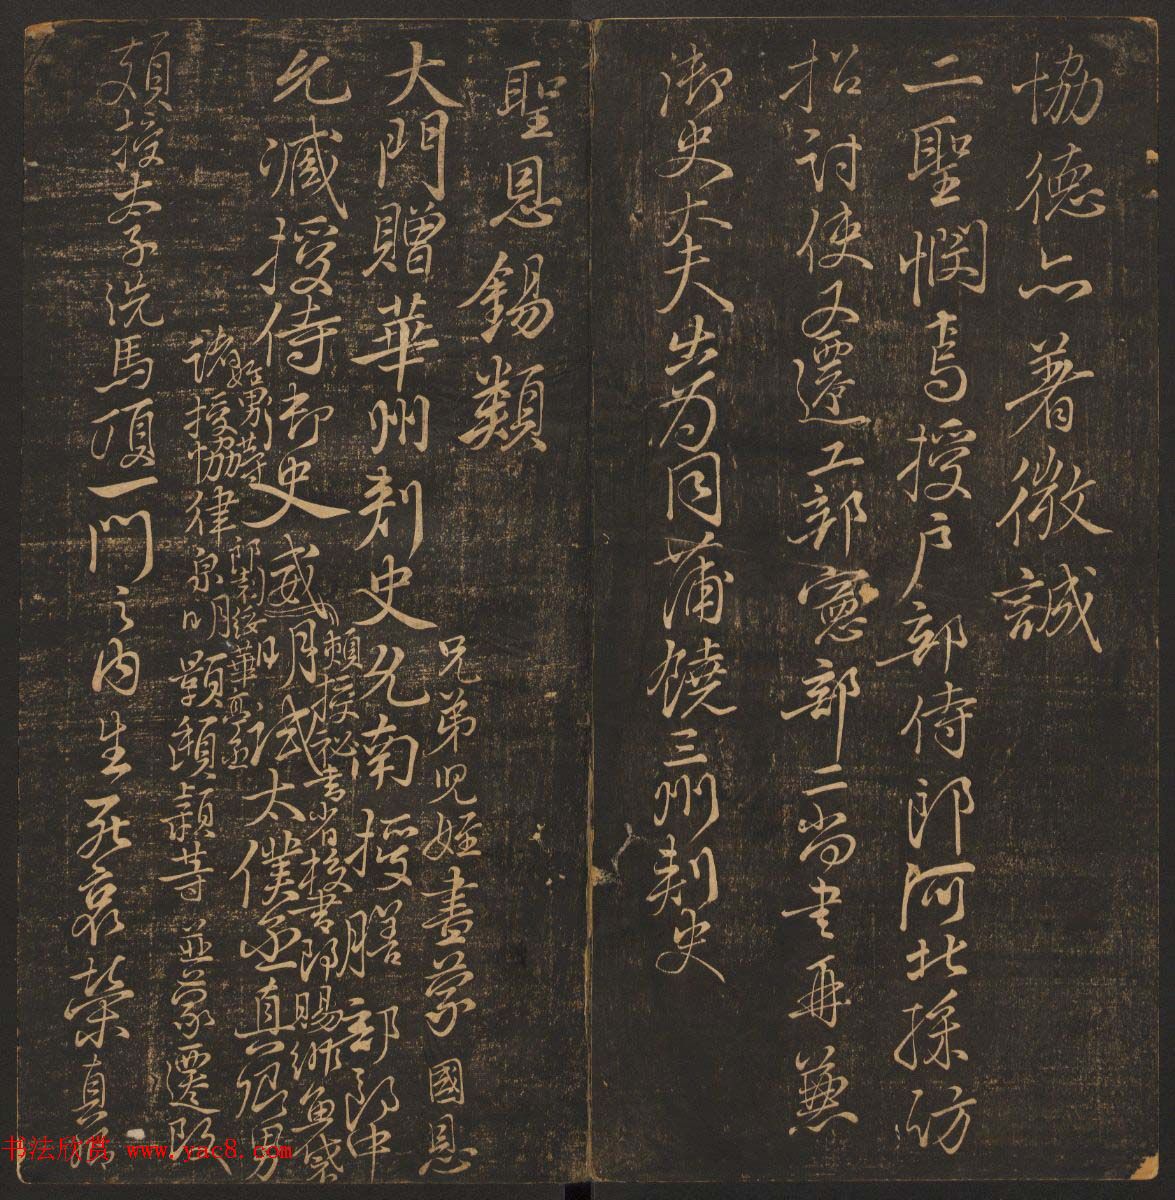 協德亦著微誠
二聖憫焉授戶部侍郎河北採訪
招討使又遷工部憲部二尚書再兼
御史大夫出為同蒲饒三州刺史
聖恩錫類
兄弟児姪盡蒙國恩
大門贈華州刺史允南授膳部郎中
頍授秘書省校書郎賜緋魚袋
允臧授侍御史威明試太僕丞真卿男
姪男等
授華亭丞
授協律泉明顗頲潁等並蒙遷改
頗授太子洗馬 一門之內生死哀榮真卿
书法欣赏 www.yac8.com